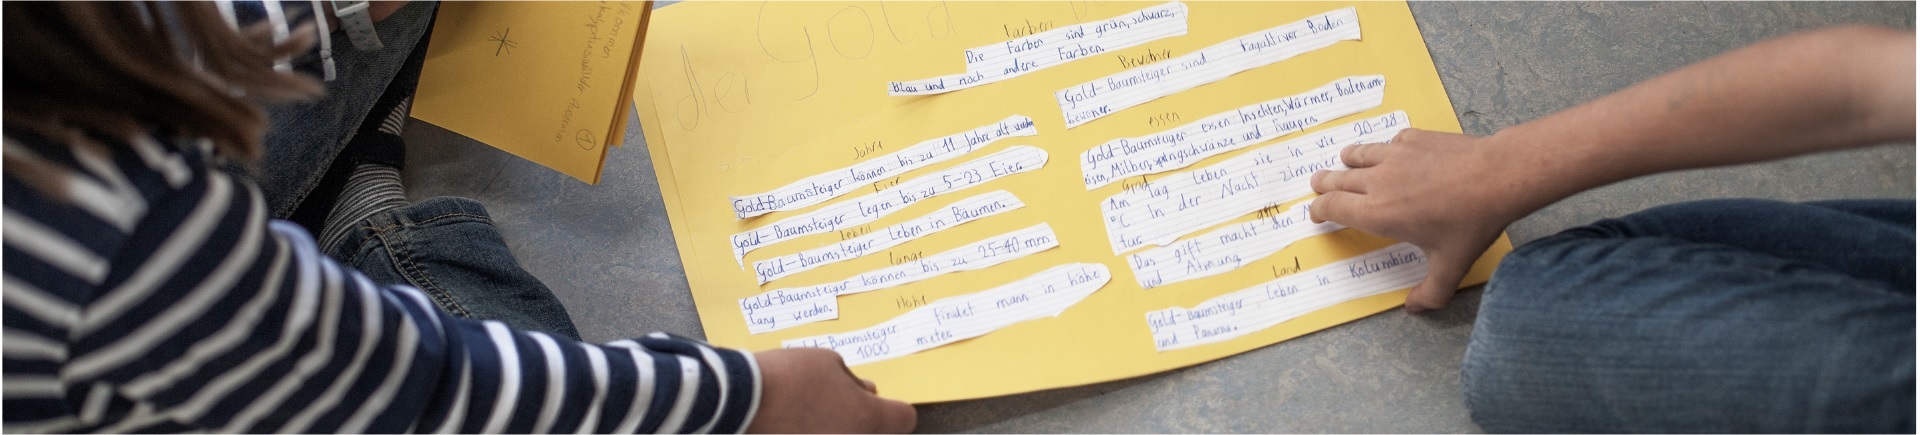 der Gold
Farben
Die Farben sind grün, schwarz,
blau und noch andere Farben.
Jahre
Gold-Baumsteiger können bis zu 11 Jahre alt werden
Eier
Gold-Baumsteiger legen bis zu 5-23 Eier.
Leben
Gold-Baumsteiger Leben in Bäumen.
Länge
Gold-Baumsteiger können bis zu 25-40 mm
Lang werden.
Höhe
Gold-Baumsteiger findet mann in höhe
1000 meter
Bewoner
Gold-Baumsteiger sind Boden
bewoner.
essen
Gold-Baumsteiger essen Insekten, Würmer, Bodenam-
eisen, Milben, springschwänze und Raupen.
Grad
Am Tag Leben sie in vie 20-28
°C In der Nacht zimmer
tur
gift
Das gift macht den
und Atmung
Land
Gold-Baumsteiger Leben in Kolumbien,
und Panama.